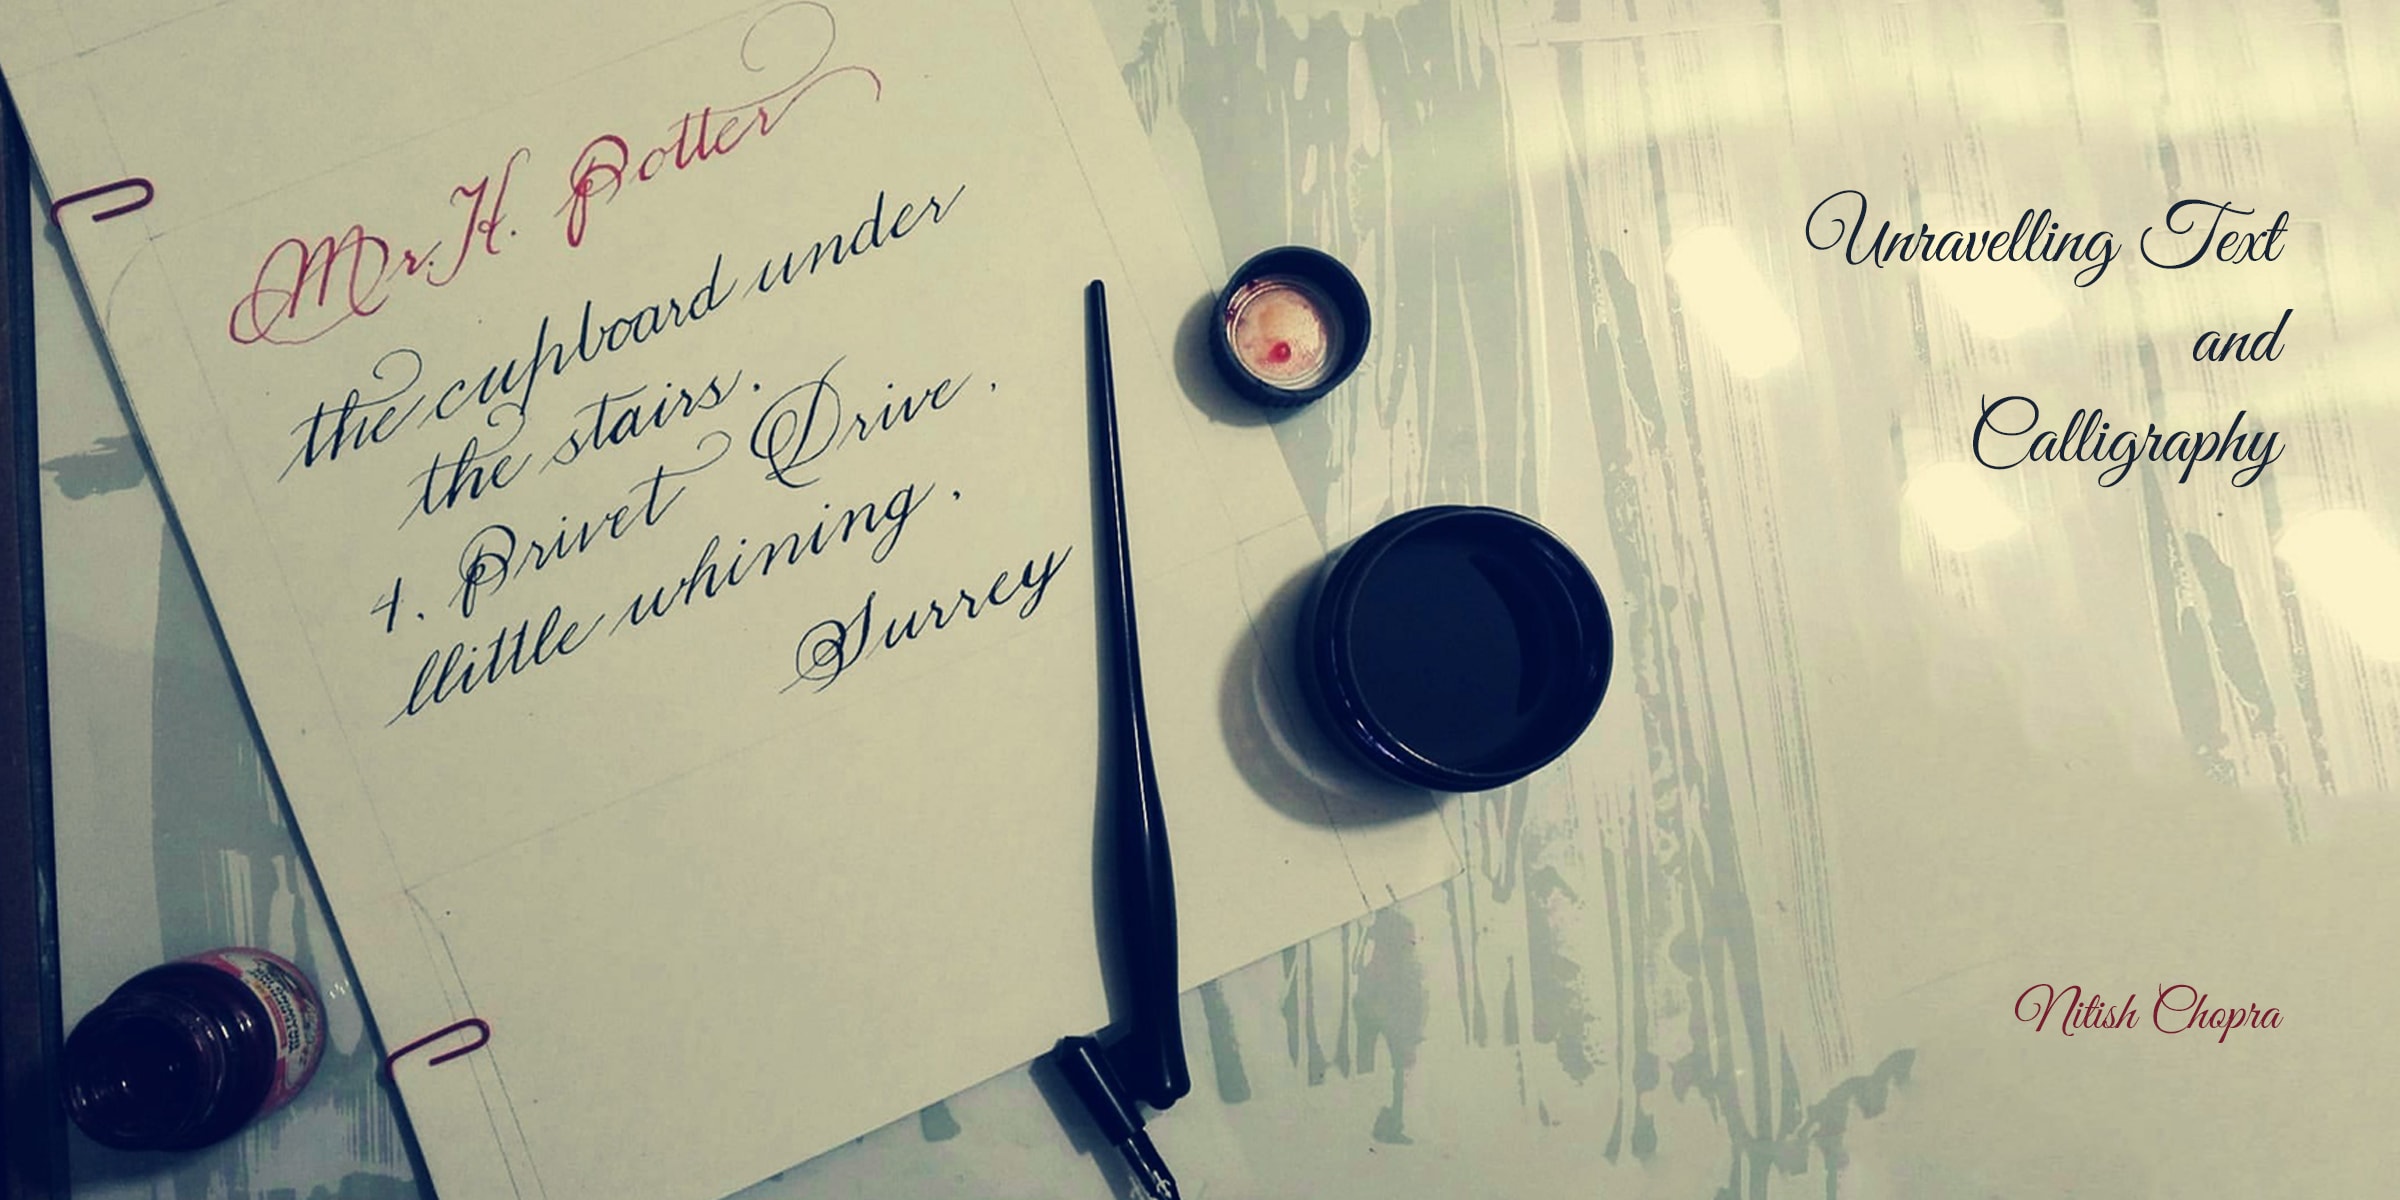 Mr. H. Potter
the cupboard under
the stairs.
4. Privet Drive.
llittle whining.
Surrey
Unravelling Text
and
Calligraphy
Nitish Chopra